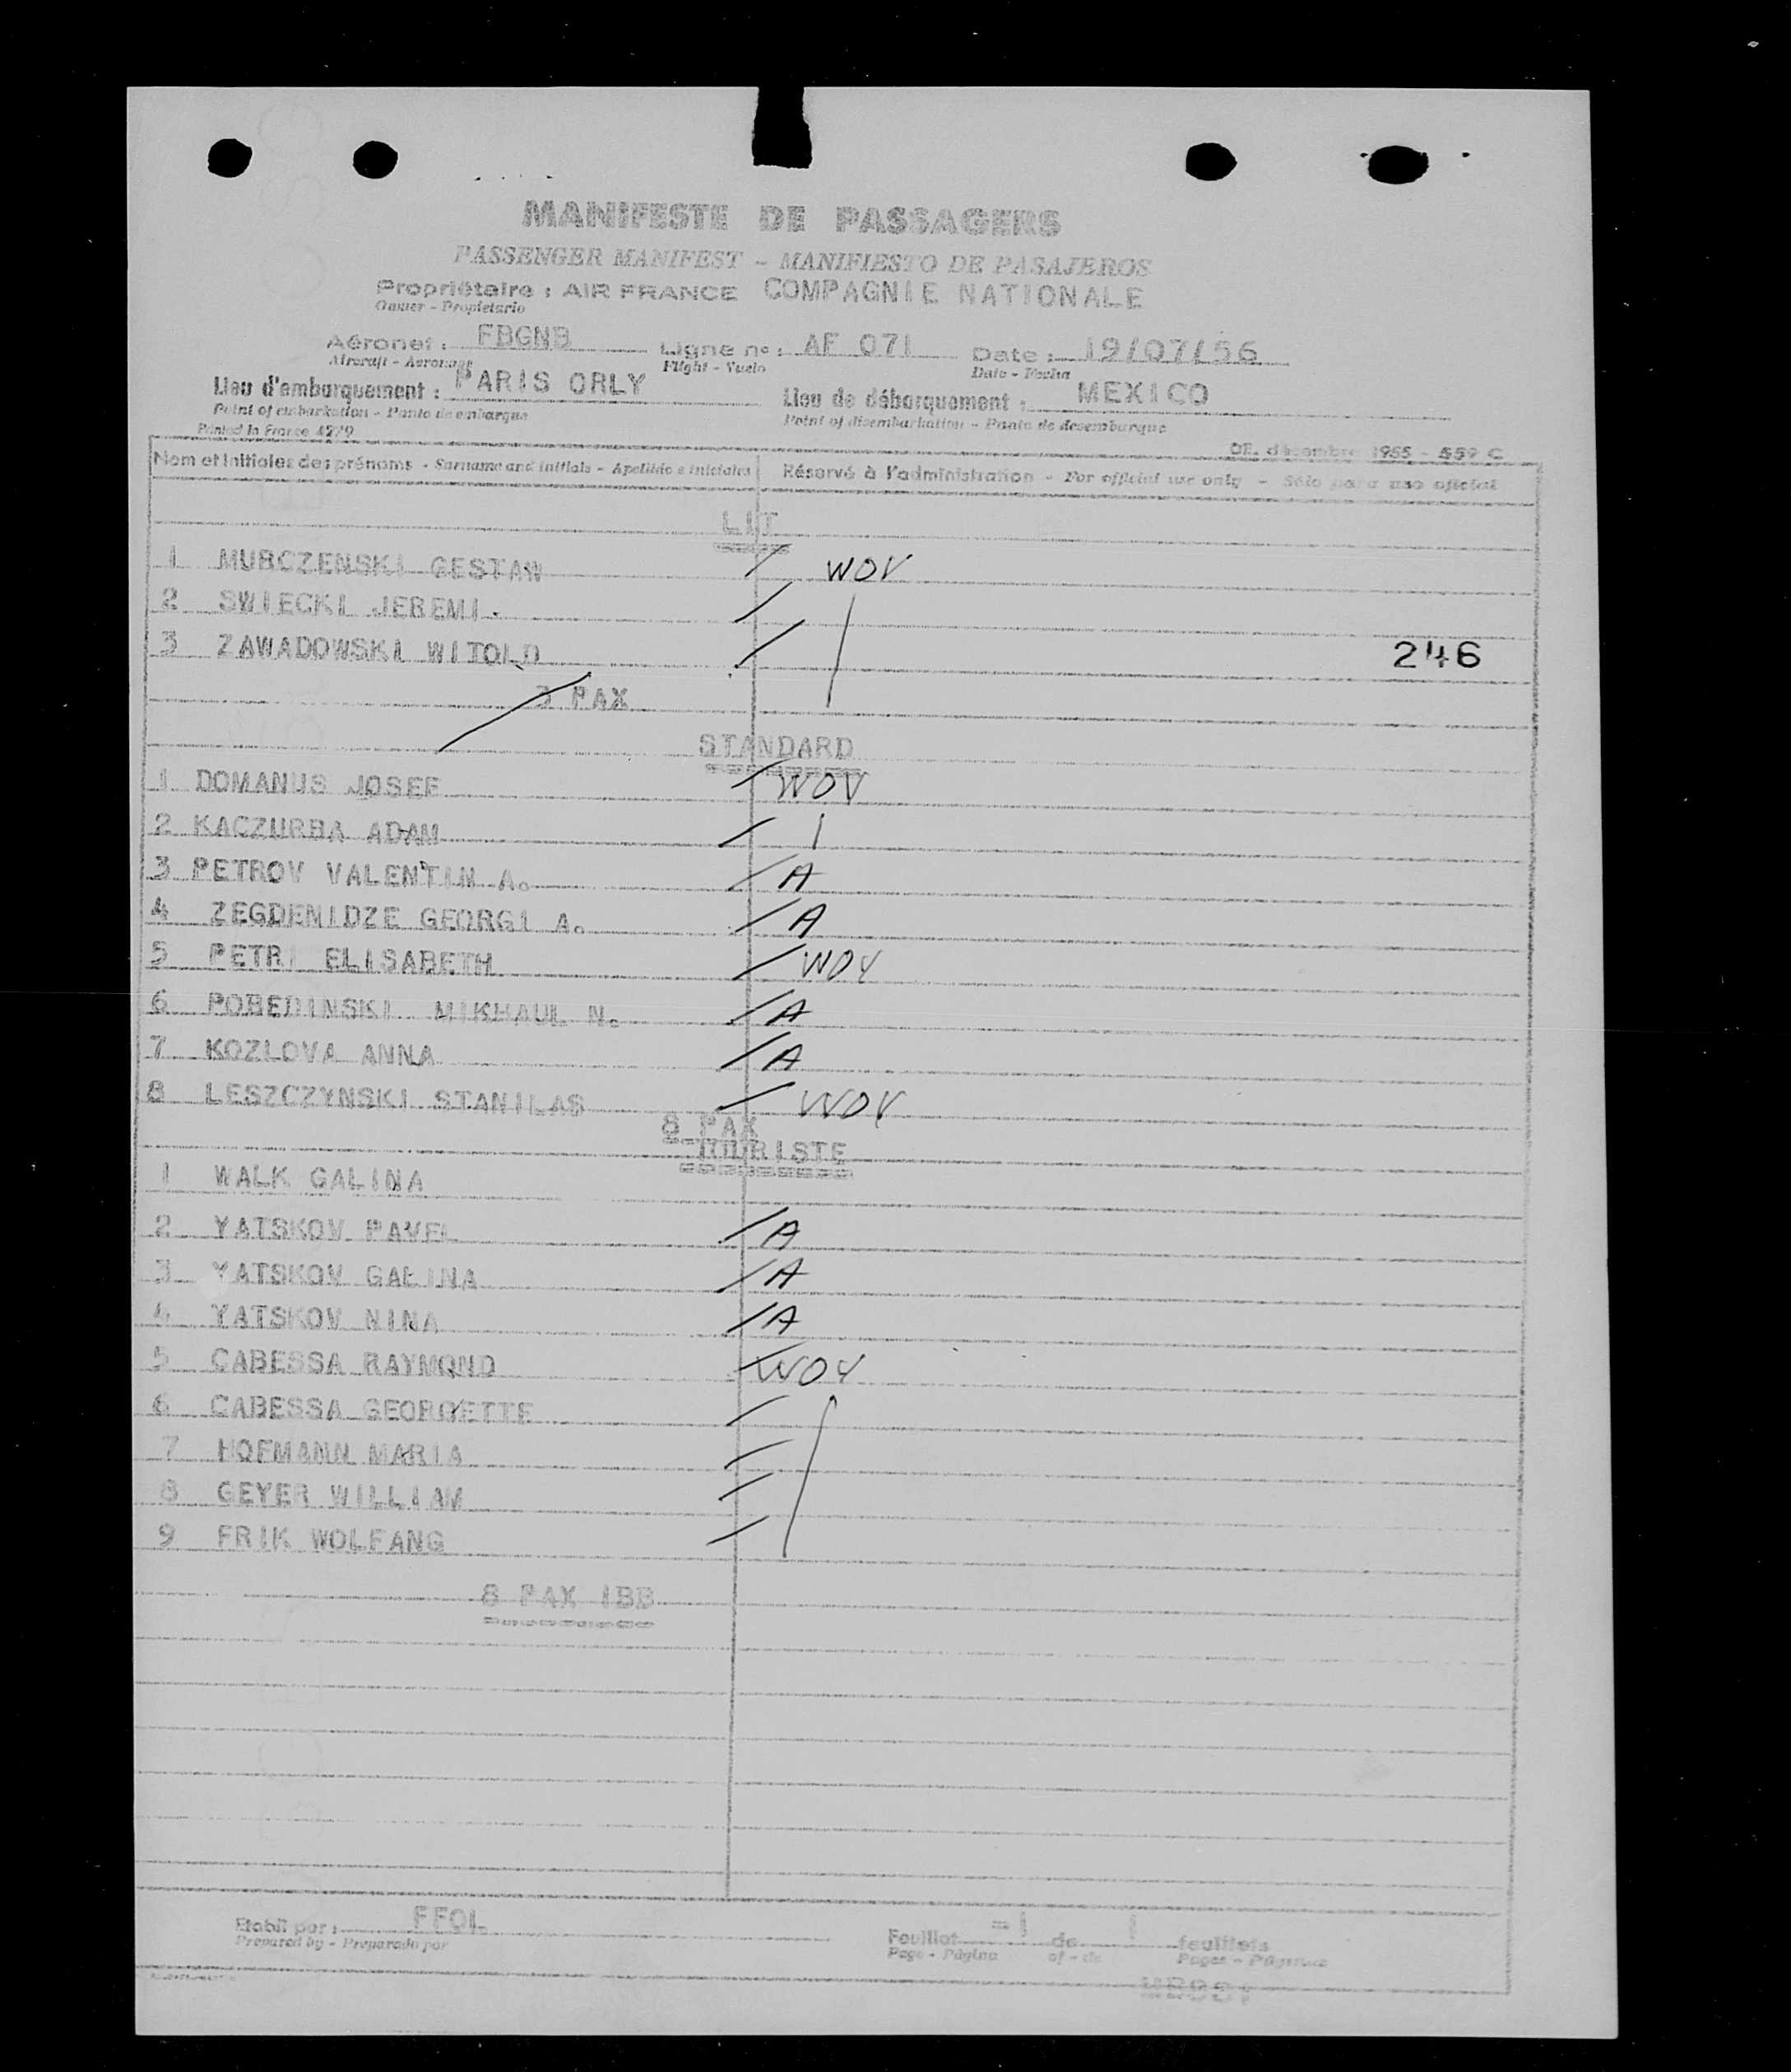 MANIFESTE DE PASSAGERS
PASSENGER MANIFEST - MANIFIESTO DE PASAJEROS
Propriétaire : AIR FRANCE COMPAGNIE NATIONALE
Owner - Propietario
Aéronef : FBGNB Ligne no : AF 071 Date : 19/07/56
Aircraft - Aeronave Flight - Vuelo Date - Fecha
Lieu d'embarquement : PARIS ORLY Lieu de débarquement : MEXICO
Point of embarkation - Punto de embarque Point of disembarkation - Punto de desembarque
Printed in France 4279
OE. décembre 1955 - 559 C
Nom et initiales des prénoms - Surname and initials - Apellido e iniciales Réservé à l'administration - For official use only - Sólo para uso oficial
LIT
1 MURCZENSKI GESTAW WOV
2 SWIECKI JEREMI.
3 ZAWADOWSKI WITOLD 246
3 PAX
STANDARD
1 DOMANUS JOSEF WOV
2 KACZURBA ADAM
3 PETROV VALENTIN A. A
4 ZEGDENIDZE GEORGI A. A
5 PETRI ELISABETH WOV
6 POBEDINSKI MIKHAUL N. A
7 KOZLOVA ANNA A
8 LESZCZYNSKI STANILAS WOV
8 PAX
TOURISTE
1 WALK GALINA
2 YATSKOV PAVEL A
3 YATSKOV GALINA A
4 YATSKOV NINA A
5 CABESSA RAYMOND WOV
6 CABESSA GEORGETTE
7 HOFMANN MARIA
8 GEYER WILLIAM
9 FRIK WOLFANG
8 PAX 1BB
Etabli par : FFOL Feuillet 1 de 1 feuillets
Prepared by - Preparado por Page - Página of - de Pages - Páginas